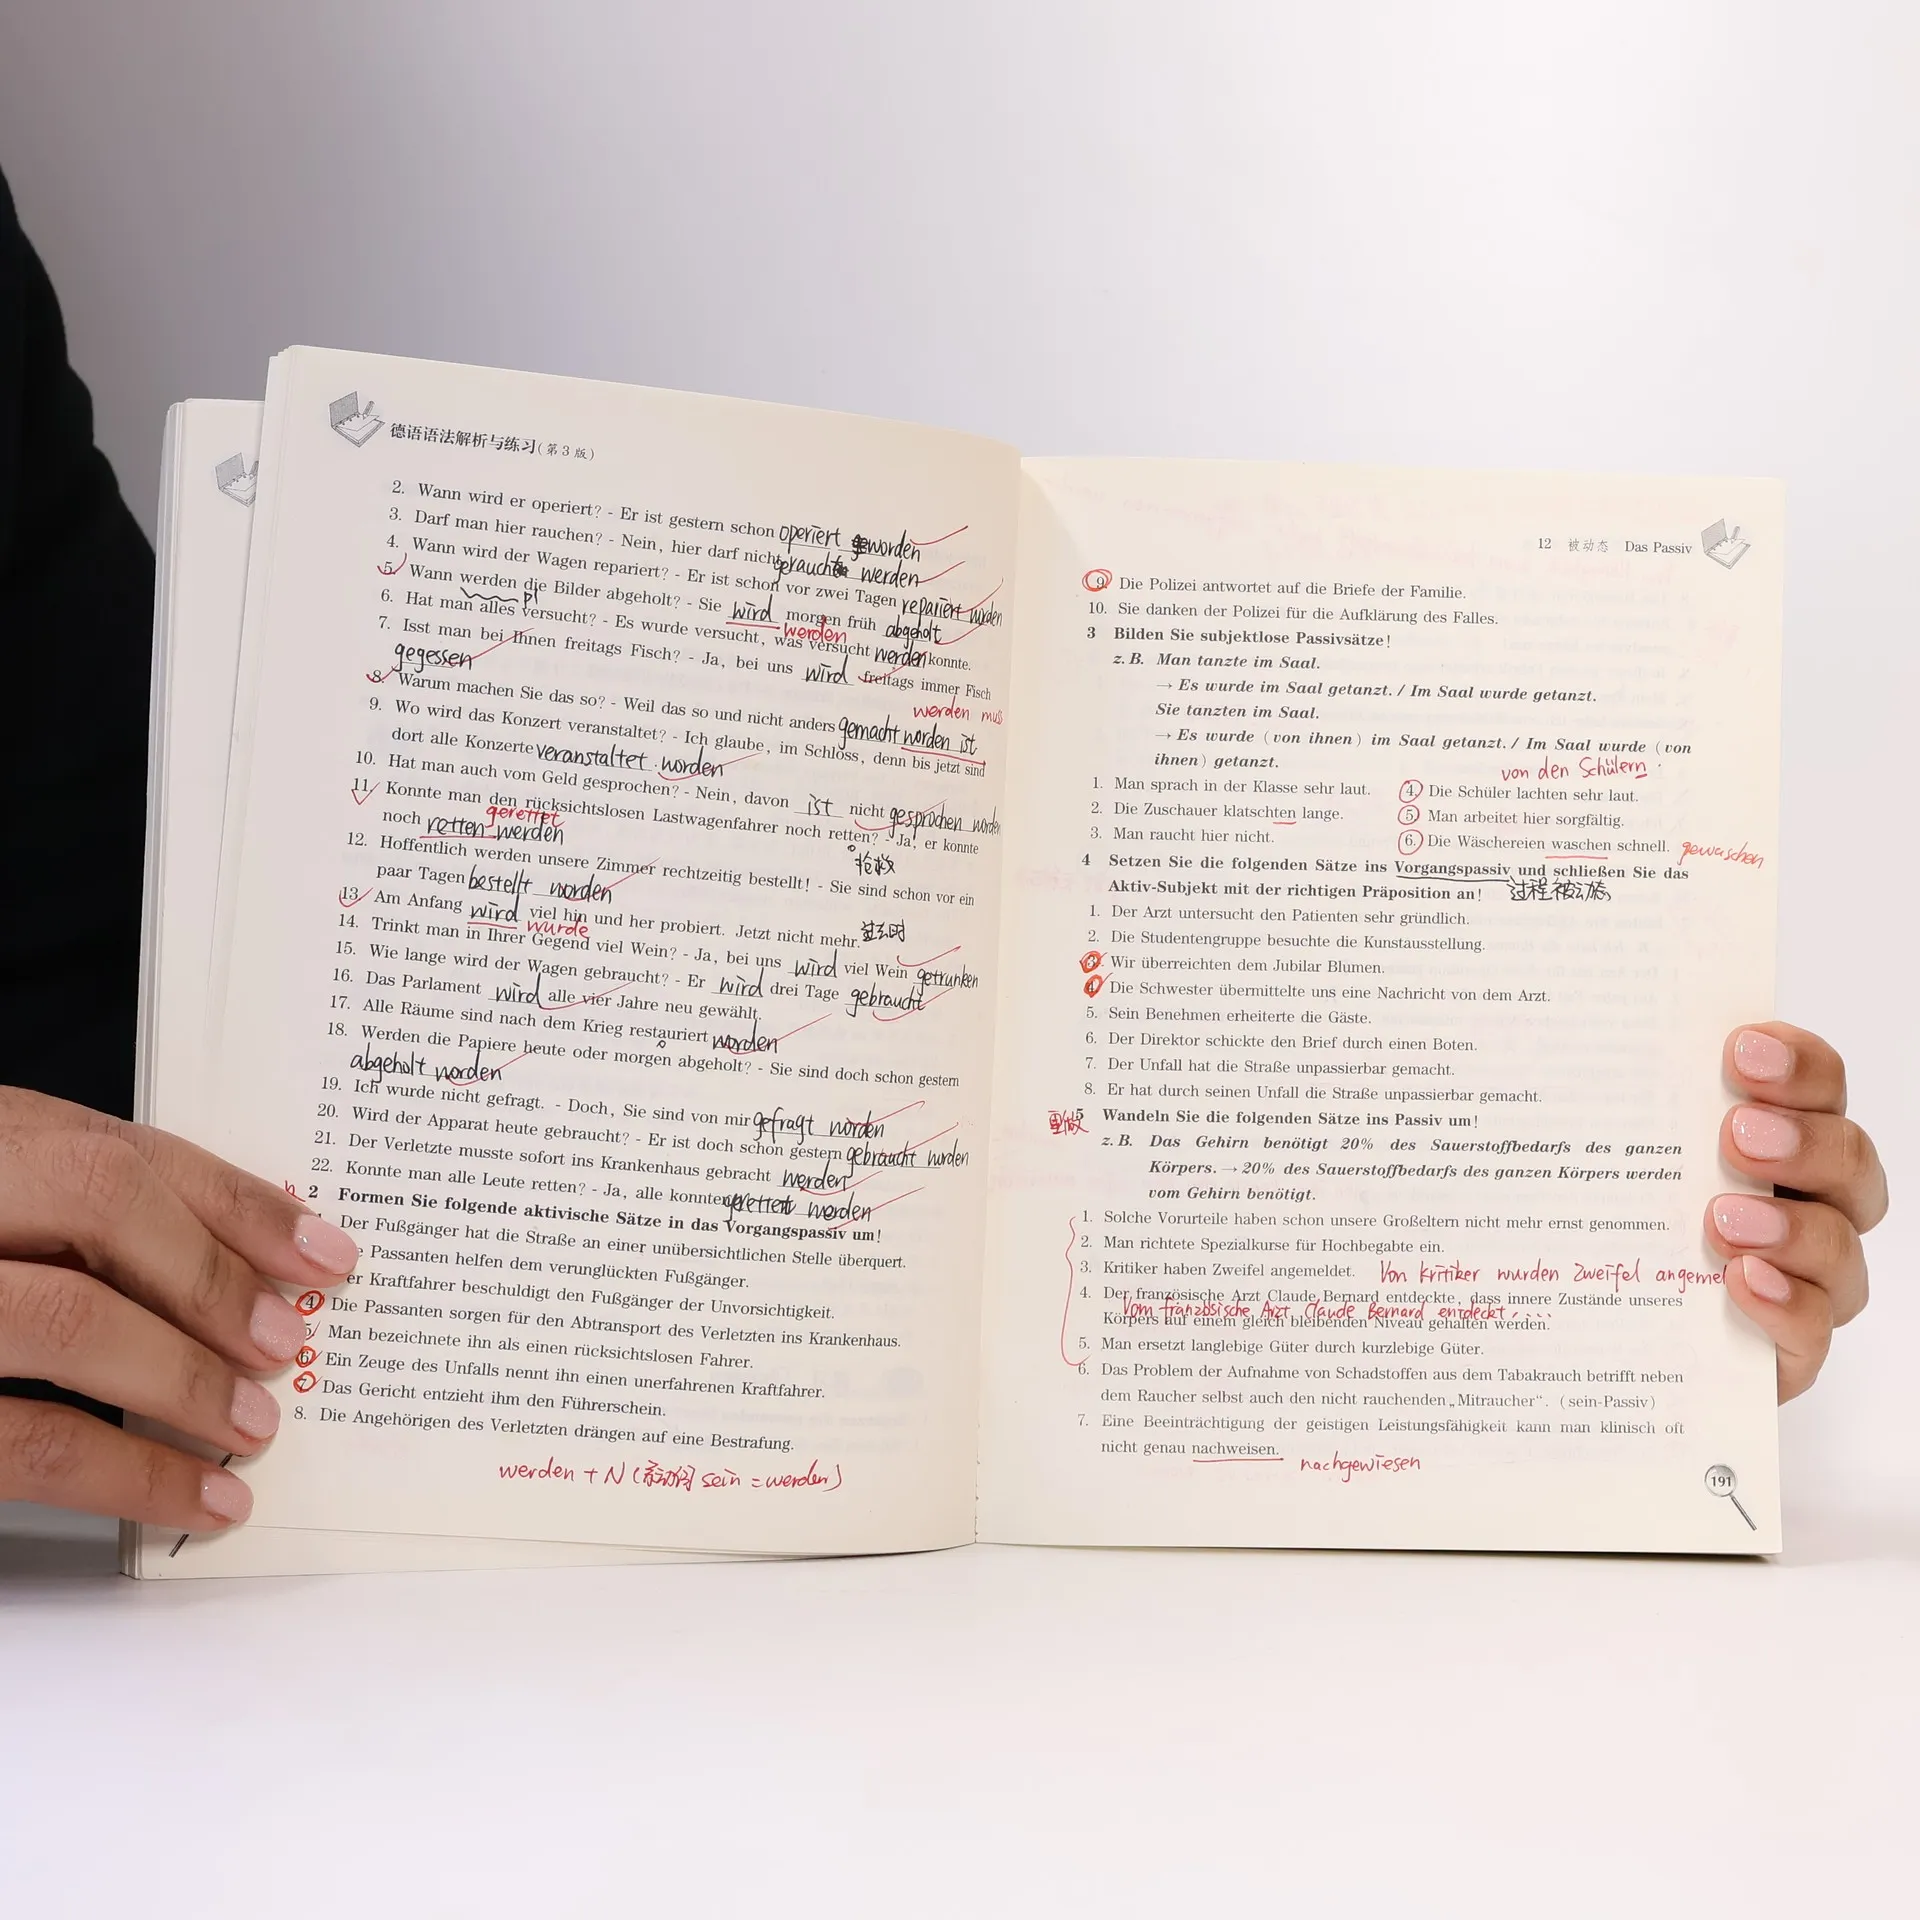 德语语法解析与练习(第3版)
2. Wann wird er operiert? - Er ist gestern schon operiert worden
3. Darf man hier rauchen? - Nein, hier darf nicht geraucht werden
4. Wann wird der Wagen repariert? - Er ist schon vor zwei Tagen repariert worden
5. Wann werden die Bilder abgeholt? - Sie wird morgen früh abgeholt
pl
werden
6. Hat man alles versucht? - Es wurde versucht, was versucht werden konnte.
7. Isst man bei Ihnen freitags Fisch? - Ja, bei uns wird freitags immer Fisch
gegessen
werden muss
8. Warum machen Sie das so? - Weil das so und nicht anders gemacht worden ist
9. Wo wird das Konzert veranstaltet? - Ich glaube, im Schloss, denn bis jetzt sind
dort alle Konzerte veranstaltet worden
10. Hat man auch vom Geld gesprochen? - Nein, davon ist nicht gesprochen worden
11. Konnte man den rücksichtslosen Lastwagenfahrer noch retten? - Ja, er konnte
gerettet
noch retten werden
抢救
12. Hoffentlich werden unsere Zimmer rechtzeitig bestellt! - Sie sind schon vor ein
paar Tagen bestellt worden
13. Am Anfang wird viel hin und her probiert. Jetzt nicht mehr. 过去时
wurde
14. Trinkt man in Ihrer Gegend viel Wein? - Ja, bei uns wird viel Wein getrunken
15. Wie lange wird der Wagen gebraucht? - Er wird drei Tage gebraucht
16. Das Parlament wird alle vier Jahre neu gewählt.
17. Alle Räume sind nach dem Krieg restauriert worden
18. Werden die Papiere heute oder morgen abgeholt? - Sie sind doch schon gestern
abgeholt worden
19. Ich wurde nicht gefragt. - Doch, Sie sind von mir gefragt worden
20. Wird der Apparat heute gebraucht? - Er ist doch schon gestern gebraucht worden
21. Der Verletzte musste sofort ins Krankenhaus gebracht werden
22. Konnte man alle Leute retten? - Ja, alle konnten gerettet werden
2 Formen Sie folgende aktivische Sätze in das Vorgangspassiv um!
Der Fußgänger hat die Straße an einer unübersichtlichen Stelle überquert.
e Passanten helfen dem verunglückten Fußgänger.
er Kraftfahrer beschuldigt den Fußgänger der Unvorsichtigkeit.
4 Die Passanten sorgen für den Abtransport des Verletzten ins Krankenhaus.
5 Man bezeichnete ihn als einen rücksichtslosen Fahrer.
6 Ein Zeuge des Unfalls nennt ihn einen unerfahrenen Kraftfahrer.
7 Das Gericht entzieht ihm den Führerschein.
8. Die Angehörigen des Verletzten drängen auf eine Bestrafung.
werden + N (系动词 sein = werden)
12 被动态 Das Passiv
9. Die Polizei antwortet auf die Briefe der Familie.
10. Sie danken der Polizei für die Aufklärung des Falles.
3 Bilden Sie subjektlose Passivsätze!
z. B. Man tanzte im Saal.
→ Es wurde im Saal getanzt. / Im Saal wurde getanzt.
Sie tanzten im Saal.
→ Es wurde (von ihnen) im Saal getanzt. / Im Saal wurde (von
ihnen) getanzt.
von den Schülern
1. Man sprach in der Klasse sehr laut. 4. Die Schüler lachten sehr laut.
2. Die Zuschauer klatschten lange. 5. Man arbeitet hier sorgfältig.
3. Man raucht hier nicht. 6. Die Wäschereien waschen schnell. gewaschen
4 Setzen Sie die folgenden Sätze ins Vorgangspassiv und schließen Sie das
Aktiv-Subjekt mit der richtigen Präposition an! 过程被动态
1. Der Arzt untersucht den Patienten sehr gründlich.
2. Die Studentengruppe besuchte die Kunstausstellung.
3. Wir überreichten dem Jubilar Blumen.
4. Die Schwester übermittelte uns eine Nachricht von dem Arzt.
5. Sein Benehmen erheiterte die Gäste.
6. Der Direktor schickte den Brief durch einen Boten.
7. Der Unfall hat die Straße unpassierbar gemacht.
8. Er hat durch seinen Unfall die Straße unpassierbar gemacht.
重做
5 Wandeln Sie die folgenden Sätze ins Passiv um!
z. B. Das Gehirn benötigt 20% des Sauerstoffbedarfs des ganzen
Körpers. → 20% des Sauerstoffbedarfs des ganzen Körpers werden
vom Gehirn benötigt.
1. Solche Vorurteile haben schon unsere Großeltern nicht mehr ernst genommen.
2. Man richtete Spezialkurse für Hochbegabte ein.
3. Kritiker haben Zweifel angemeldet. Von Kritiker wurden Zweifel angemel
4. Der französische Arzt Claude Bernard entdeckte, dass innere Zustände unseres
Vom französische Arzt Claude Bernard entdeckt, ....
Körpers auf einem gleich bleibenden Niveau gehalten werden.
5. Man ersetzt langlebige Güter durch kurzlebige Güter.
6. Das Problem der Aufnahme von Schadstoffen aus dem Tabakrauch betrifft neben
dem Raucher selbst auch den nicht rauchenden „Mitraucher“. (sein-Passiv)
7. Eine Beeinträchtigung der geistigen Leistungsfähigkeit kann man klinisch oft
nicht genau nachweisen.
nachgewiesen
191